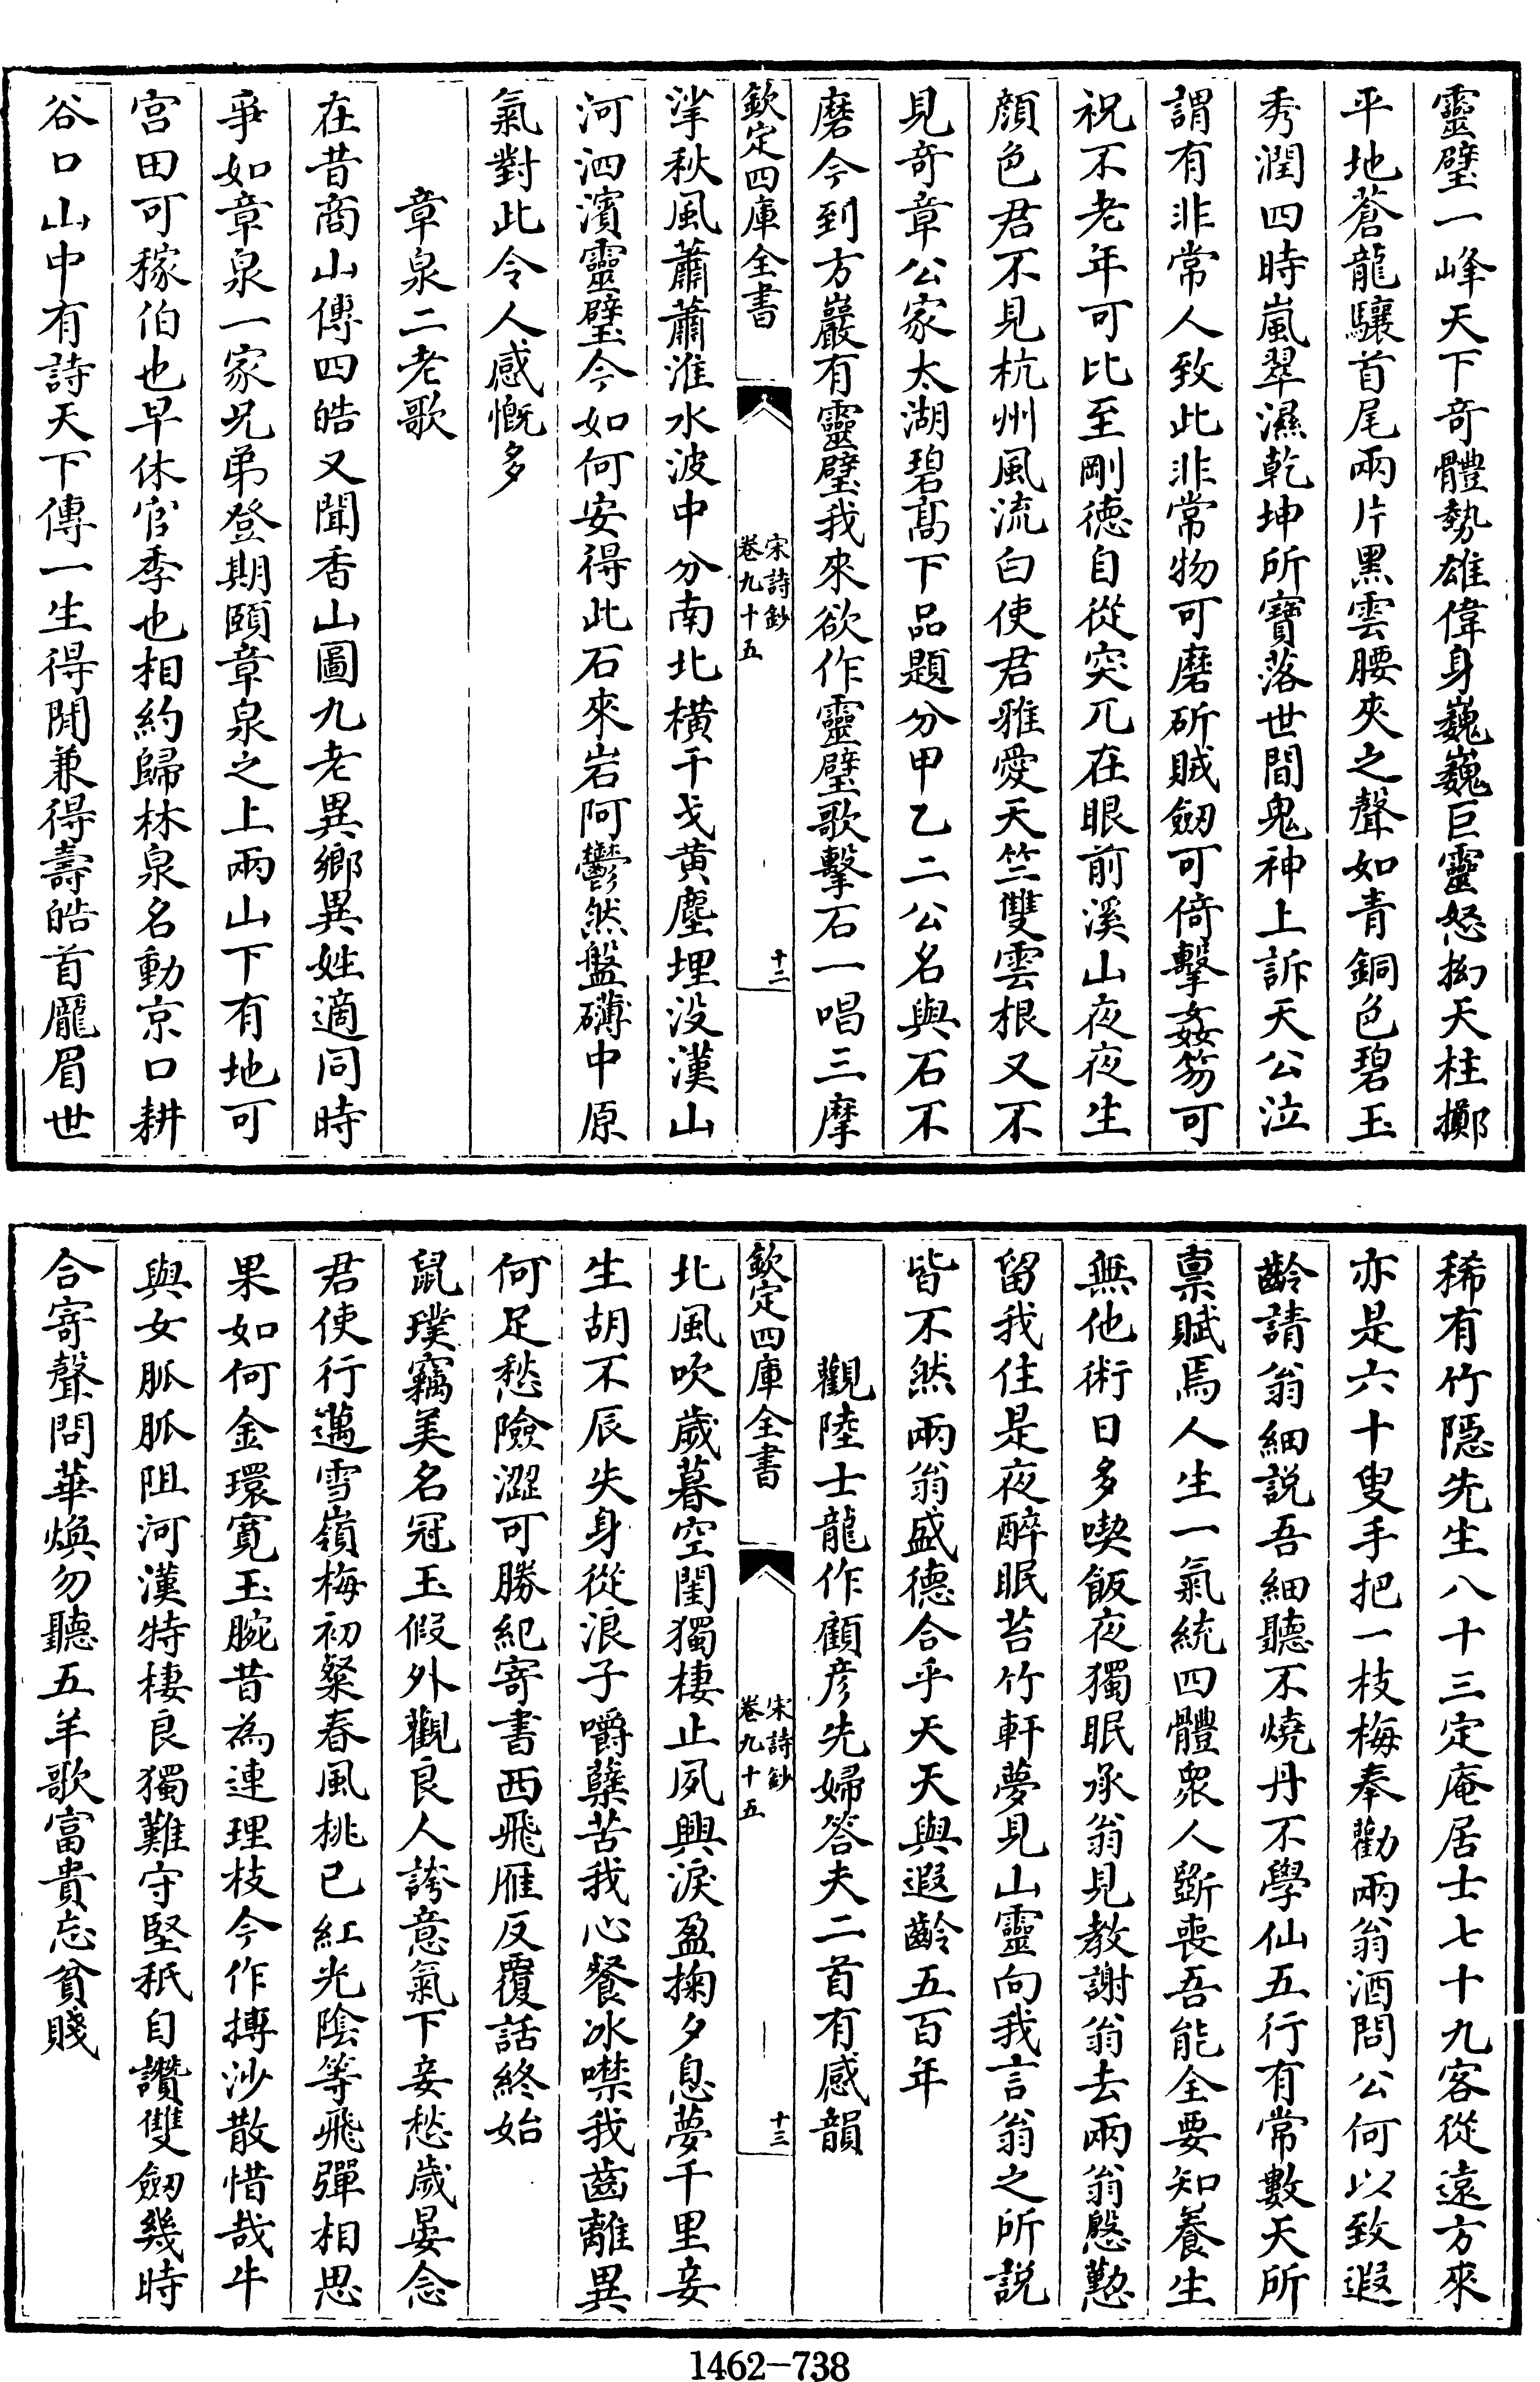 靈璧一峰天下奇體勢雄偉身巍巍巨靈怒拗天柱擲
平地蒼龍驤首尾兩片黑雲腰夾之聲如青銅色碧玉
秀潤四時嵐翠濕乾坤所寶落世間鬼神上訴天公泣
謂有非常人致此非常物可磨斫賊劒可倚擊姦笏可
祝不老年可比至剛德自從突兀在眼前溪山夜夜生
顔色君不見杭州風流白使君雅愛天竺雙雲根又不
見奇章公家太湖碧髙下品題分甲乙二公名與石不
磨今到方巖有靈璧我來欲作靈璧歌擊石一唱三摩
欽定四庫全書
宋詩鈔
卷九十五
十二
挲秋風蕭蕭淮水波中分南北橫干戈黄塵埋没漢山
河泗濱靈璧今如何安得此石來岩阿鬱然盤礴中原
氣對此令人感慨多
章泉二老歌
在昔商山傳四皓又聞香山圖九老異鄉異姓適同時
爭如章泉一家兄弟登期頤章泉之上兩山下有地可
宫田可稼伯也早休官季也相約歸林泉名動京口耕
谷口山中有詩天下傳一生得閒兼得壽皓首龐眉世
稀有竹隱先生八十三定庵居士七十九客從遠方來
亦是六十叟手把一枝梅奉勸兩翁酒問公何以致遐
齡請翁細説吾細聽不燒丹不學仙五行有常數天所
禀賦焉人生一氣統四體衆人斵喪吾能全要知養生
無他術日多喫飯夜獨眠承翁見教謝翁去兩翁慇懃
留我住是夜醉眠苔竹軒夢見山靈向我言翁之所説
皆不然兩翁盛德合乎天天與遐齡五百年
觀陸士龍作顧彦先婦答夫二首有感韻
欽定四庫全書
宋詩鈔
卷九十五
十三
北風吹歲暮空閨獨棲止夙興淚盈掬夕息夢千里妾
生胡不辰失身從浪子嚼蘗苦我心餐冰噤我齒離異
何足愁險澀可勝紀寄書西飛雁反覆話終始
鼠璞竊美名冠玉假外觀良人誇意氣下妾愁歲晏念
君使行邁雪嶺梅初粲春風桃已紅光陰等飛彈相思
果如何金環寛玉腕昔為連理枝今作摶沙散惜哉牛
與女脈脈阻河漢特棲良獨難守堅秖自讚雙劒幾時
合寄聲問華煥勿聽五羊歌富貴忘貧賤
1462-738